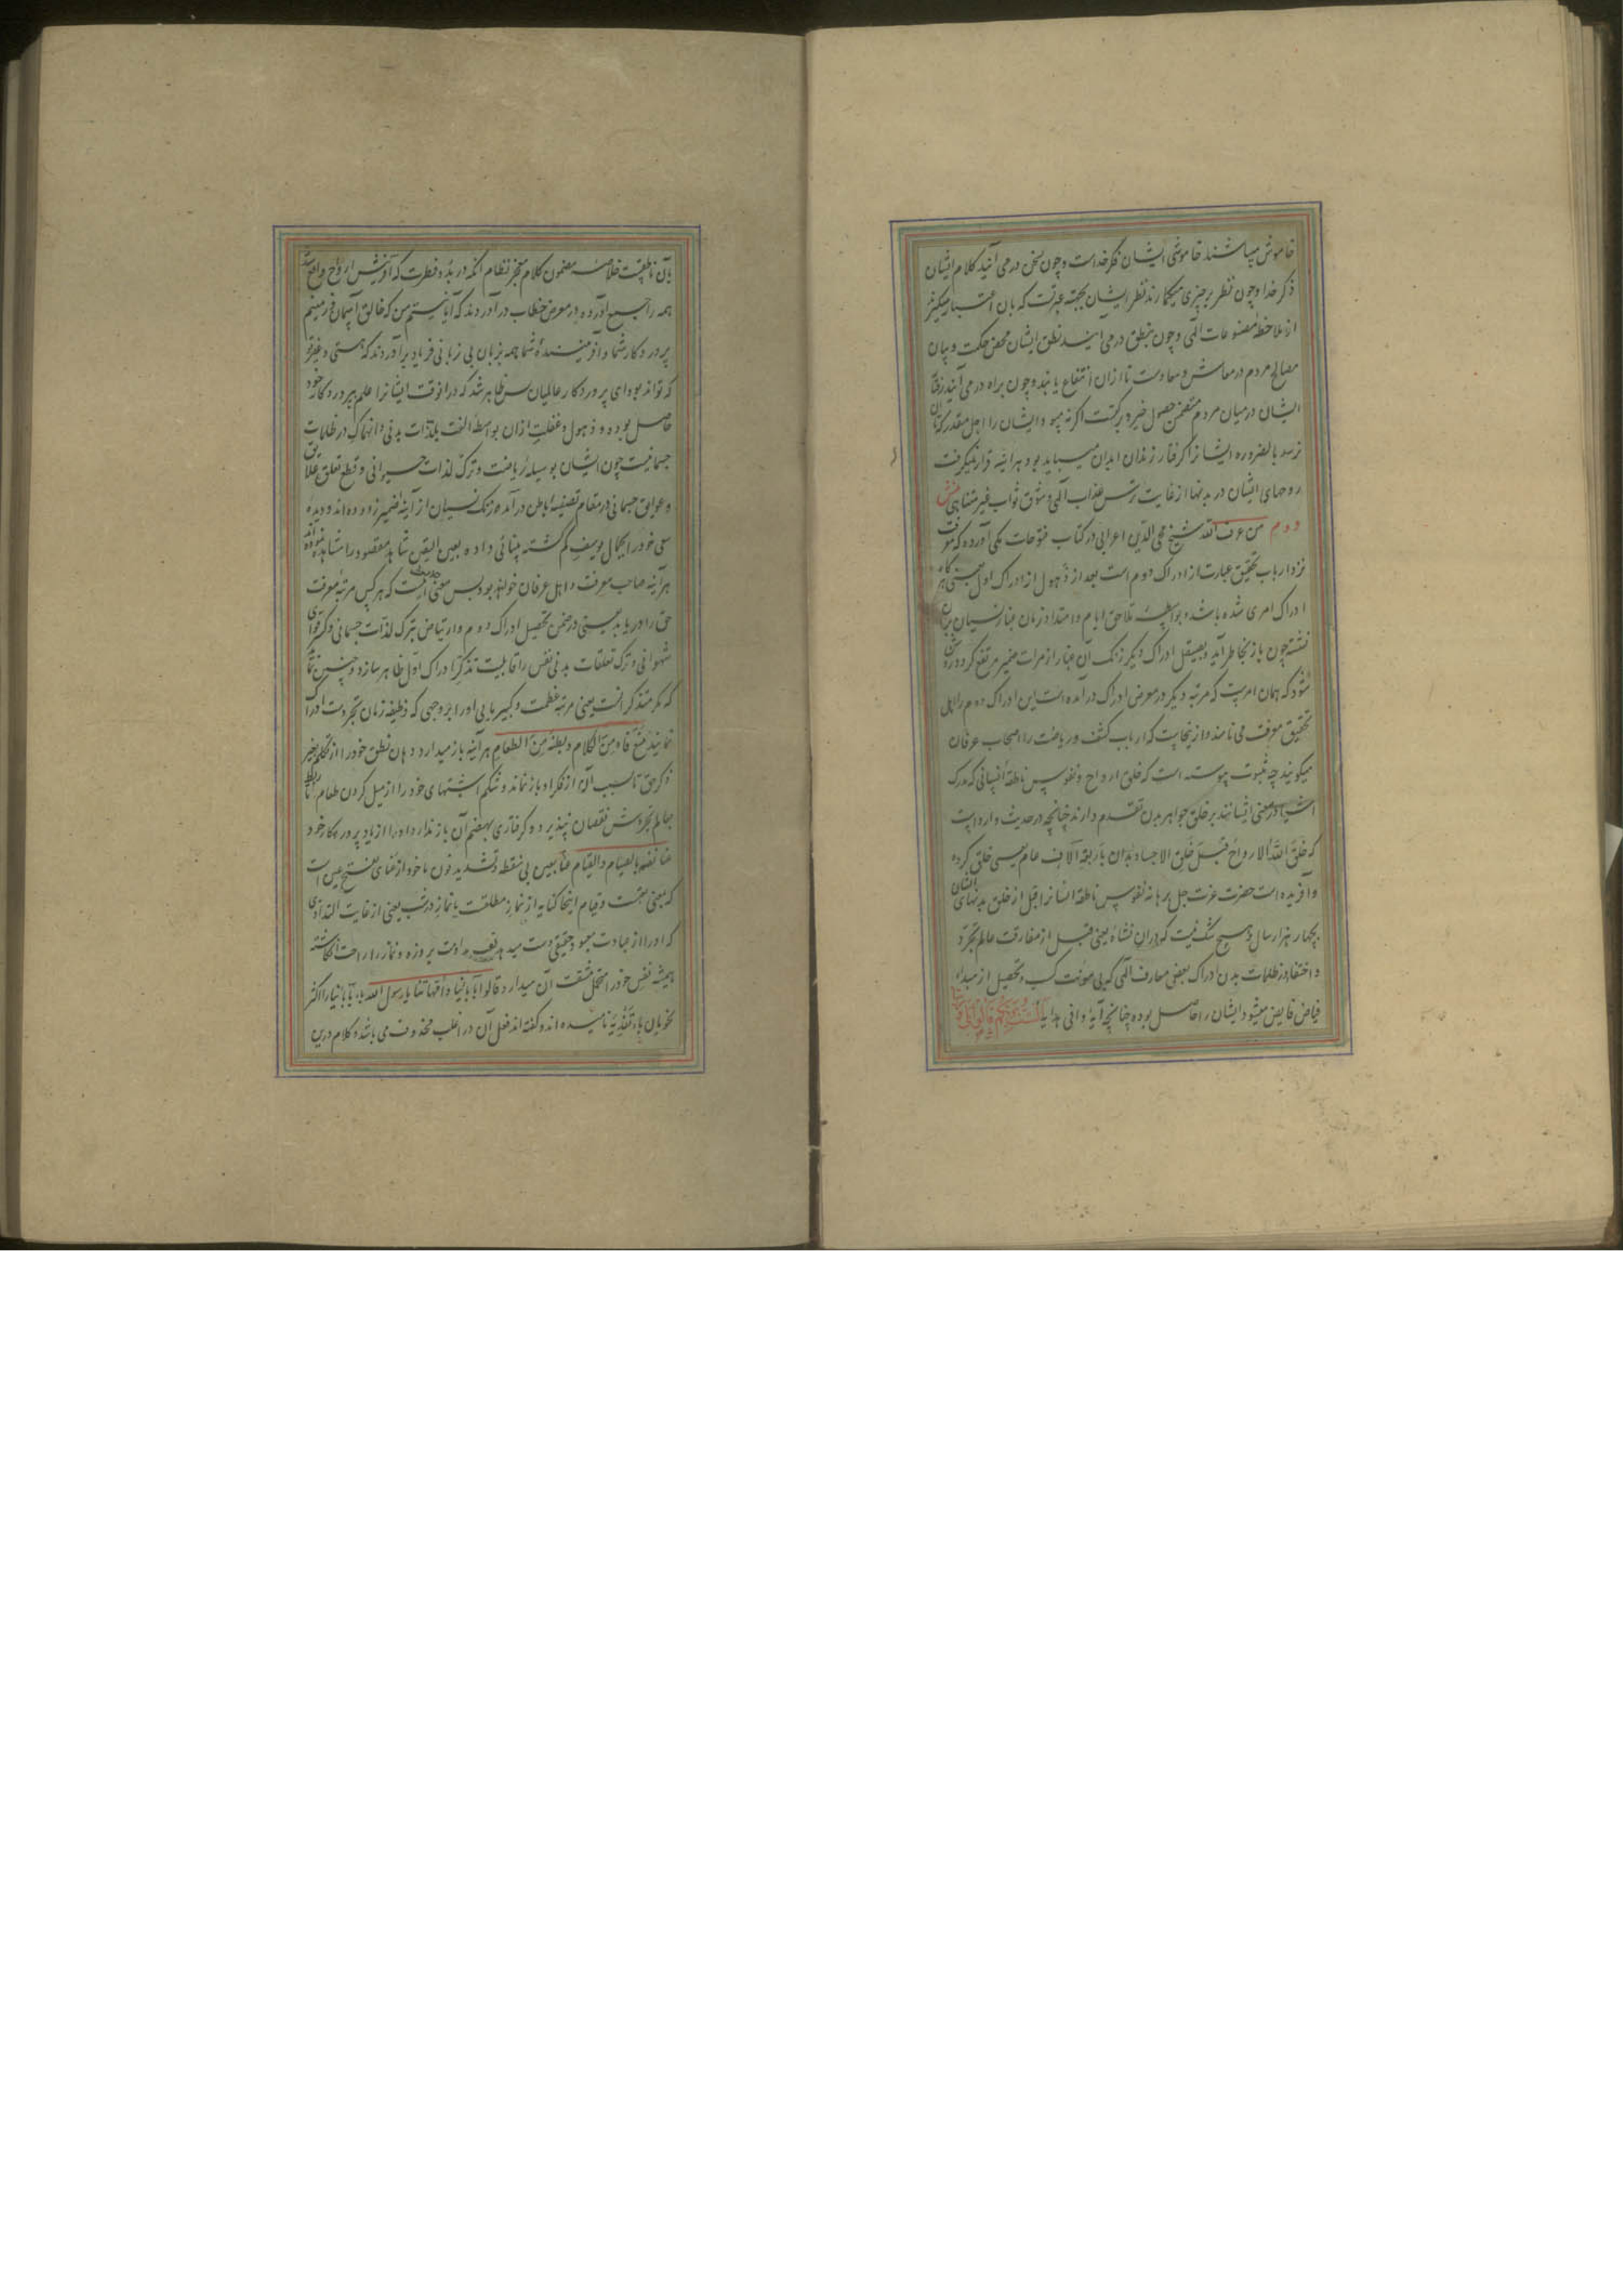 خاموش میباشند خاموشی ایشان فکر خداست و چون بسخن درمی آیند کلام ایشان
ذکر خدا و چون نظر بر چیزی میگمارند نظر ایشان بجهة عبرتست که بان اعتبار میگیرند
از ملاحظهٔ مصنوعات الهی و چون بنطق درمی آیند نطق ایشان محض حکمت و بیان
مصالح مردم در معاش و معادست تا ازان انتفاع یابند و چون براه درمی آیند رفتار
ایشان درمیان مردم متضمن حصول خیر و برکتست اگر نه میبود ایشان را اجل مقدر که تا ان
نرسد بالضروره ایشانرا گرفتار زندان ابدان میباید بود هر آینه قرار نمیگرفت
روحهای ایشان در بدنها از غایت ترس عذاب الهی و شوق ثواب غیر متناهی
دوم من عرف الله شیخ محی الدین اعرابی در کتاب فتوحات مکی آورده که معرفت
نزد ارباب تحقیق عبارت از ادراک دوم است بعد از ذهول از ادراک اول یعنی هر گاه
ادراک امری شده باشد و بواسطهٔ تلاحق ایام و امتداد زمان غبار نسیان بران
نشسته چون باز بخاطر آید و بصیقل ادراک دیگر زنک آن غبار از مرات ضمیر مرتفع کردد و روشن
شود که همان امریست که مرتبه دیگر در معرض ادراک درآمده است این ادراک دوم را اهل
تحقیق معرفت می نامند و ازینجاست که ارباب کشف و ریاضت را اصحاب عرفان
میگویند چه بثبوت پیوسته است که خلق ارواح و نفوس ناطقهٔ انسانی که مدرک
اشیا در معنی ایشانند بر خلق جواهر بدن تقدم دارند چنانچه در حدیث وارد است
که خلق الله الارواح قبل خلق الاجساد بأربعة آلاف عام یعنی خلق کرده
و آفریده است حضرت عزت جل برهانه نفوس ناطقه انسانرا قبل از خلق بدنهای ایشان
بچهار هزار سال و هیچ شک نیست که دران نشاه یعنی قبل از مفارقت عالم تجرد
و اختفا در ظلمات بدن ادراک بعضی معارف الهی که بی مؤنت کسب و تحصیل از مبداء
فیاض فایض میشود ایشان را حاصل بوده چنانچه آیهٔ وافی هدایه الست بربکم قالوا بلی
بآن ناطقست خلاصه مضمون کلام معجز نظام انکه در بدو فطرت که آفرینش ارواح واقع شد
همه را جمع آورده در معرض خطاب درآوردند که آیا نیستم من که خالق آسمان و زمینم
پروردکار شما و آفرینندهٔ شما همه بزبان بی زبانی فریاد برآوردند که هستی و غیر تو
که تواند بود ای پروردکار عالمیان پس ظاهر شد که درانوقت ایشانرا علم بپروردکار خود
حاصل بوده و ذهول و غفلت ازان بواسطهٔ الفت بلذات بدنی و انهماک در ظلمات
جسمانیست چون ایشان بوسیلهٔ ریاضت و ترک لذات حیوانی و قطع تعلق علایق
و عوایق جسمانی در مقام تصفیهٔ باطن درآمده زنک نسیان از آینهٔ ضمیر زدوده اند و دیدهٔ
سعی خود را بجمال یوسف کم کشته بینائی داده بعین الیقین شاهد مقصود را مشاهده نموده اند
هر آینه صاحب معرفت و اهل عرفان خواهند بود پس معنی حدیث آنست که هر کس مرتبهٔ معرفت
حق را دریابد یعنی در ضمن تحصیل ادراک دوم و ارتیاض بترک لذات جسمانی و کسر قوای
شهوانی و ترک تعلقات بدنی نفس را قابلیت تذکر ادراک اول ظاهر سازد و
که متذکر انست یعنی مرتبهٔ عظمت و کبریایی او را بر وجهی که وظیفه زمان تجردست ادراک
نمایند منع فاه من الکلام و بطنه من الطعام هر آینه باز میدارد دهان نطق خود را از تکلم بغیر
ذکر حق تا بسبب آن از فکر او باز نماند و شکم اشتهای خود را از میل کردن طعام تا
بعالم تجردش نقصان نپذیرد و کرفتاری بهضم آن باز ندارد او را از یاد پروردکار خود
عنا نفسه بالصیام و القیام عنا بعین بی نقطه و تشدید نون ماخوذ از عنای بفتح عین است
که بمعنی تعبست و قیام اینجا کنایه از نماز مطلقست یا نماز در شب یعنی از غایت التذاذی
که او را از عبادت معبود حقیقی دست میدهد تعب مداومت بر روزه و نماز را راحت انکاشته
همیشه نفس خود را متحمل مشقت آن میدارد قالوا بآبائنا و أمهاتنا یا رسول الله باء بآبائنا را اکثر
نحویان باء تفدیه نامیده اند و گفته اند فعل آن در اغلب محذوف می باشد و کلام درین